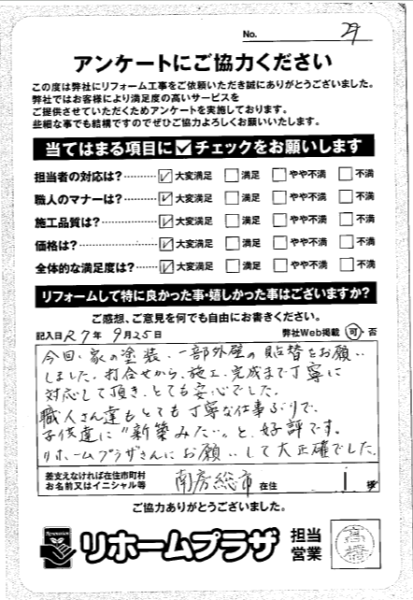 No. 29
アンケートにご協力ください
この度は弊社にリフォーム工事をご依頼いただき誠にありがとうございました。
弊社ではお客様により満足度の高いサービスを
ご提供させていただくためアンケートを実施しております。
些細な事でも結構ですのでぜひご協力よろしくお願いいたします。
当てはまる項目に☑チェックをお願いします
担当者の対応は?……… ☑大変満足 □満足 □やや不満 □不満
職人のマナーは?……… ☑大変満足 □満足 □やや不満 □不満
施工品質は?……… ☑大変満足 □満足 □やや不満 □不満
価格は?……… ☑大変満足 □満足 □やや不満 □不満
全体的な満足度は?…… ☑大変満足 □満足 □やや不満 □不満
リフォームして特に良かった事・嬉しかった事はございますか?
ご感想、ご意見を何でも自由にお書きください。
記入日 R7年 9月25日 弊社Web掲載 可・否
今回、家の塗装、一部外壁の貼替をお願い
しました。打合せから、施工、完成まで丁寧に
対応して頂き、とても安心でした。
職人さん達もとても丁寧な仕事ぶりで、
子供達に"新築みたい"と、好評です。
リホームプラザさんにお願いして大正確でした。
差支えなければ在住市町村
お名前又はイニシャル等 南房総市 在住 I 様
ご協力ありがとうございました。
リホームプラザ 担当
営業 高橋